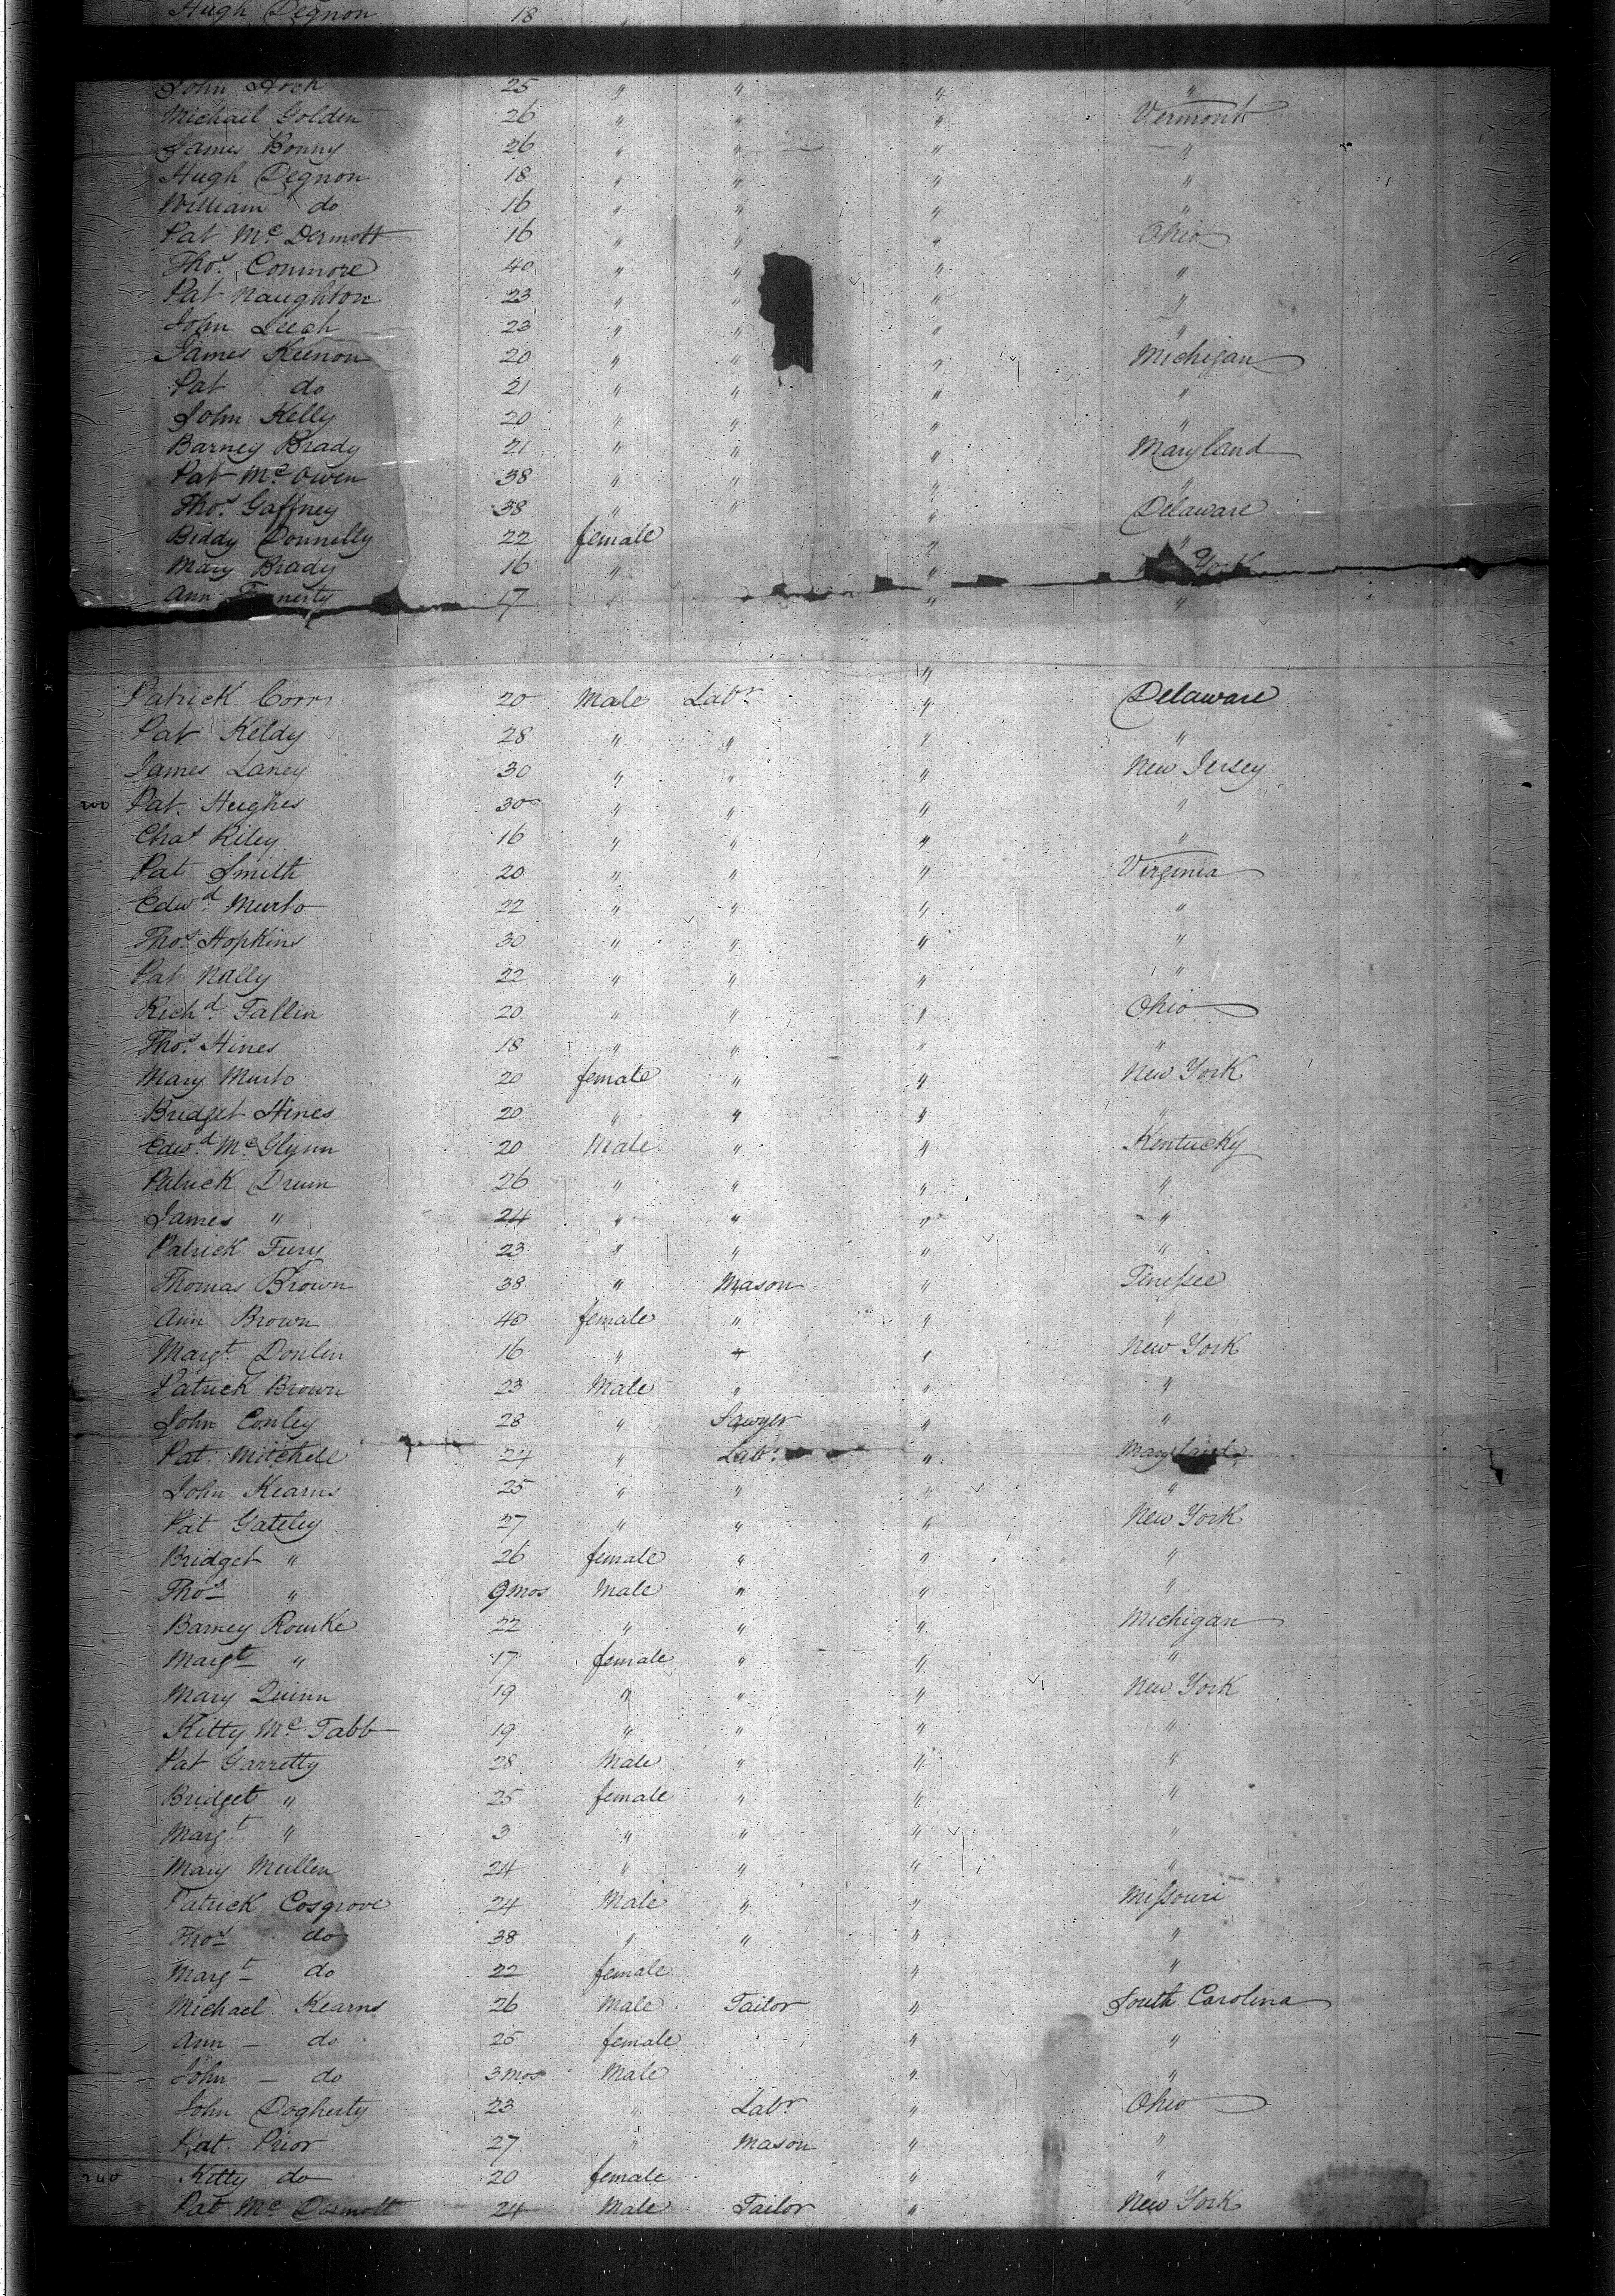 Hugh Degnon 18 "
John 25 " " " "
Michael Golden 26 " " " Vermont
James Bonny 26 " " " "
Hugh Degnon 18 " " " "
William do 16 " " " "
Pat Mc Dermott 16 " " " Ohio
Thos. Conmore 40 " " " "
Pat Naughton 23 " " " "
John Leech 23 " " " "
James Keenon 20 " " " Michigan
Pat do 21 " " " "
John Kelly 20 " " " "
Barney Brady 21 " " " Maryland
Pat Mc Owen 38 " " " "
Thos. Gaffney 38 " " " Delaware
Biddy Donnelly 22 female " "
Mary Brady 16 " " York
Ann 17 " " "
"
Patrick Corr 20 Male Labr. " Delaware
Pat Keldy 28 " " " "
James Laney 30 " " " New Jersey
200 Pat. Hughes 30 " " " "
Chas Riley 16 " " " "
Pat Smith 20 " " " Virginia
Edwd. Murto 22 " " " "
Thos. Hopkins 30 " " " "
Pat Nally 22 " " " "
Richd. Fallin 20 " " " Ohio
Thos. Hines 18 " " " "
Mary Murto 20 female " " New York
Bridget Hines 20 " " " "
Edwd. Mc Glynn 20 Male " " Kentucky
Patrick Drum 26 " " " "
James " 24 " " " "
Patrick Fury 23 " " " "
Thomas Brown 38 " Mason " Tenessee
Ann Brown 40 female " " "
Margt. Donlin 16 " " " New York
Patrick Brown 23 Male " " "
John Conley 28 " Sawyer " "
Pat. Mitchele 24 " Labr. " Maryland
John Kearns 25 " " " "
Pat Gateley 27 " " " New York
Bridget " 26 female " " "
Thos " 9 mos Male " " "
Barney Rourke 22 " " " Michigan
Margt " 17 female " " "
Mary Quinn 19 " " " New York
Kitty Mc Tabb 19 " " " "
Pat Garretty 28 Male " " "
Bridget " 25 female " " "
Margt. " 3 " " " "
Mary Mullen 24 " " " "
Patrick Cosgrove 24 Male " " Missouri
Thos do 38 " " " "
Margt do 22 female " "
Michael Kearns 26 Male Tailor " South Carolina
Ann - do 25 female " "
John - do 3 mos Male " "
John Dogherty 23 " Labr " Ohio
Pat. Prior 27 " Mason " "
240 Kitty do 20 female " "
Pat Mc Dermott 24 Male Tailor " New York